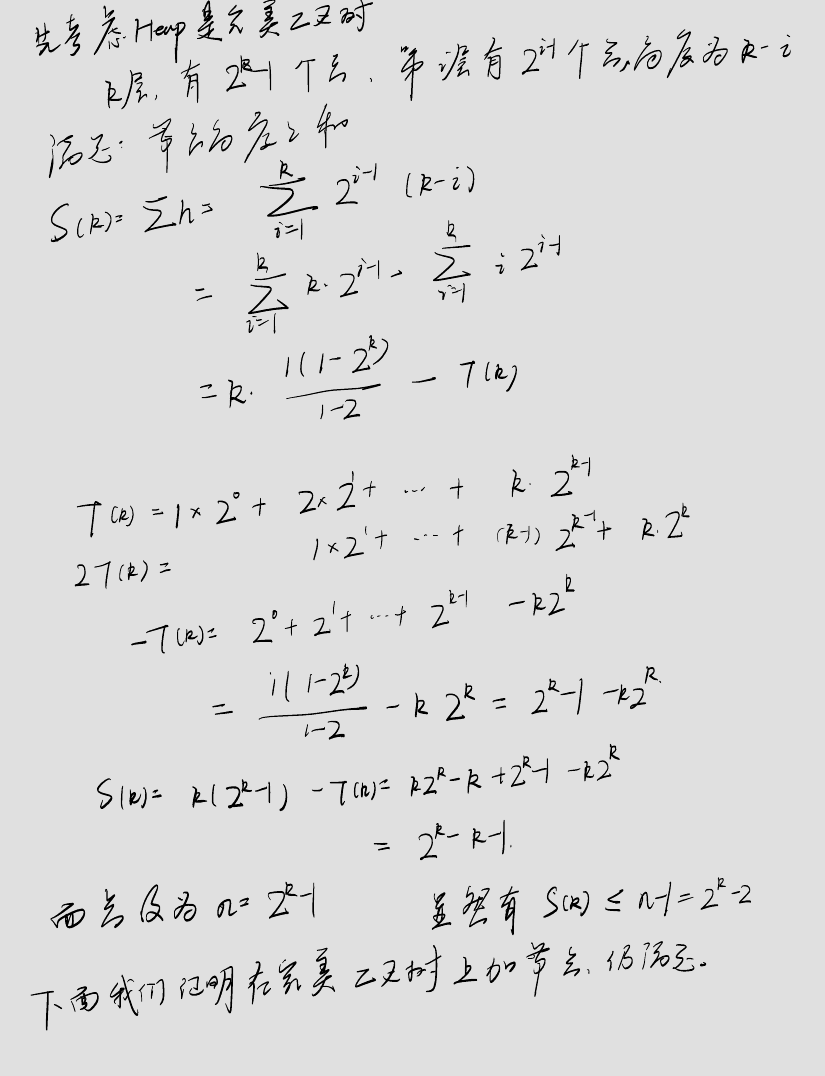 先考虑 Heap 是完美二叉树
k层, 有 2^k-1 个点, 第i层有 2^{i-1} 个点,高度为 k-i
满足: 节点高度之和
S(k)= Σh= \sum_{i=1}^{k} 2^{i-1} (k-i)
= \sum_{i=1}^{k} k·2^{i-1} - \sum_{i=1}^{k} i 2^{i-1}
= k· \frac{1(1-2^k)}{1-2} - T(k)
T(k) = 1×2^0 + 2×2^1 + ··· + k·2^{k-1}
2T(k) = 1×2^1 + ··· + (k-1) 2^{k-1} + k·2^k
-T(k)= 2^0+2^1+···+2^{k-1} -k2^k
= \frac{1(1-2^k)}{1-2} - k 2^k = 2^k-1 -k2^k.
S(k)= k(2^k-1) -T(k)= k2^k-k+2^k-1 -k2^k
= 2^k-k-1.
而点数为 n= 2^k-1 显然有 S(k) ≤ n-1=2^k-2
下面我们证明在完美二叉树上加节点, 仍满足。